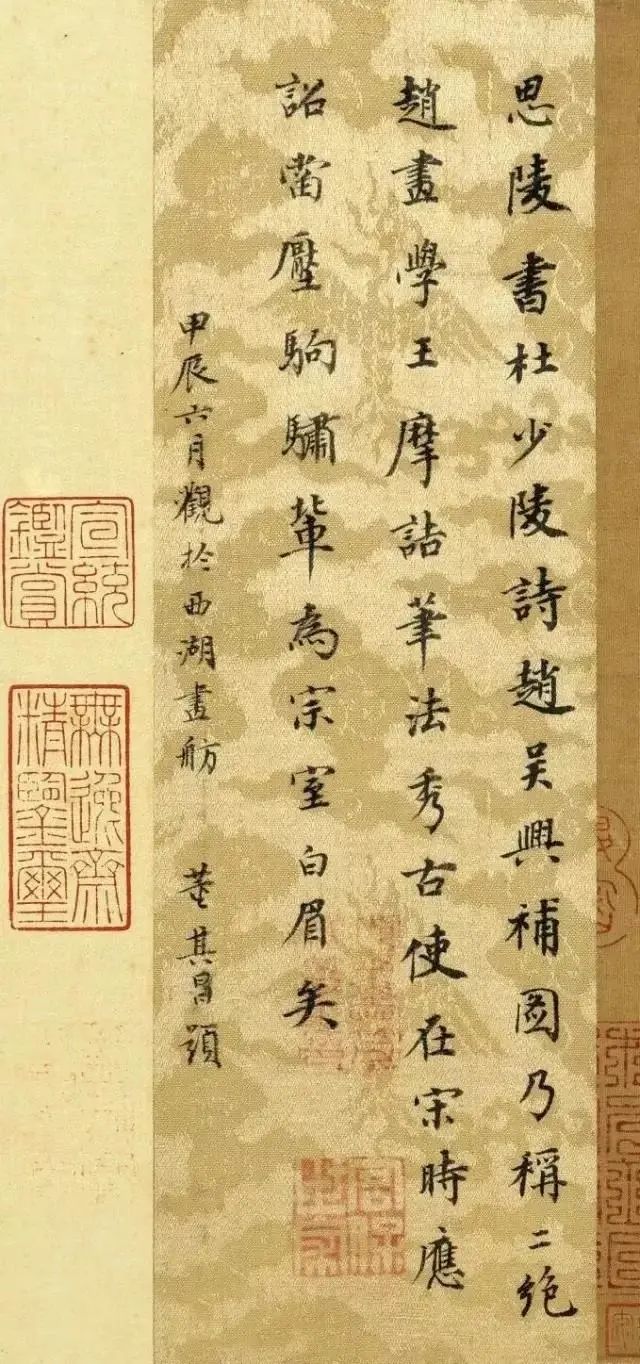 思陵書杜少陵詩趙吳興補圖乃稱二絶
趙畫學王摩詰筆法秀古使在宋時應
詔當壓駒驌輩為宗室白眉矣
甲辰六月觀於西湖畫舫 董其昌題
宣統鑑賞
無逸齋精鑒璽